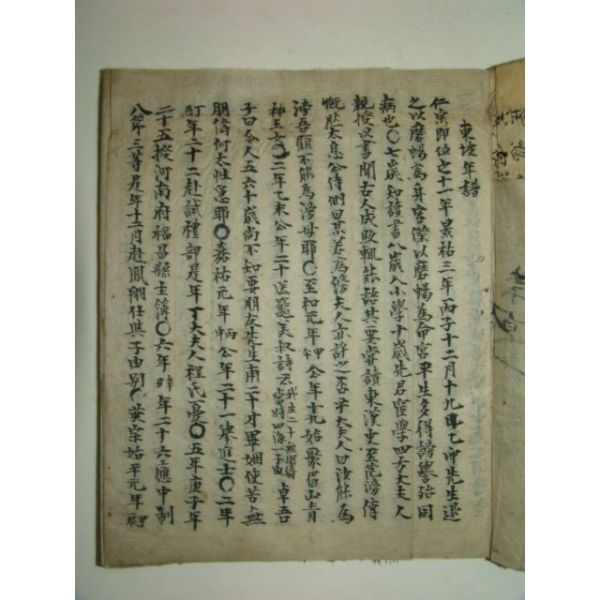 東坡年譜
仁宗卽位之十一年景祐三年丙子十二月十九日乙卯先生退
之以磨蝎爲身宮僕以磨蝎爲命宮平生多得謗譽殆同
病也〇七歲知讀書八歲入小學十歲先君宦學四方大夫人
親授以書聞古人成敗輒能語其要嘗讀東漢史至范滂傳
慨然太息公侍側曰某若爲滂夫人亦許之否乎大夫人曰汝能爲
滂吾顧不能爲滂母耶〇至和元年甲午公年十九始娶眉山青
神王方〇二年乙未公年二十送 美叔詩云 我生二十無朋儔當時四海一子由 卓吾
子曰今人五六十歲尚不知要朋友先生甫二十才畢姻使苦無
朋儔何太性急耶〇嘉祐元年丙申公年二十一擧進士〇二年
丁酉年二十二赴試禮部是年丁大夫人程氏憂〇五年庚子年
二十五授河南府福昌縣主簿〇六年辛丑年二十六應中制
入第三等是年十二月赴鳳翔任與子由別〇英宗治平元年甲辰